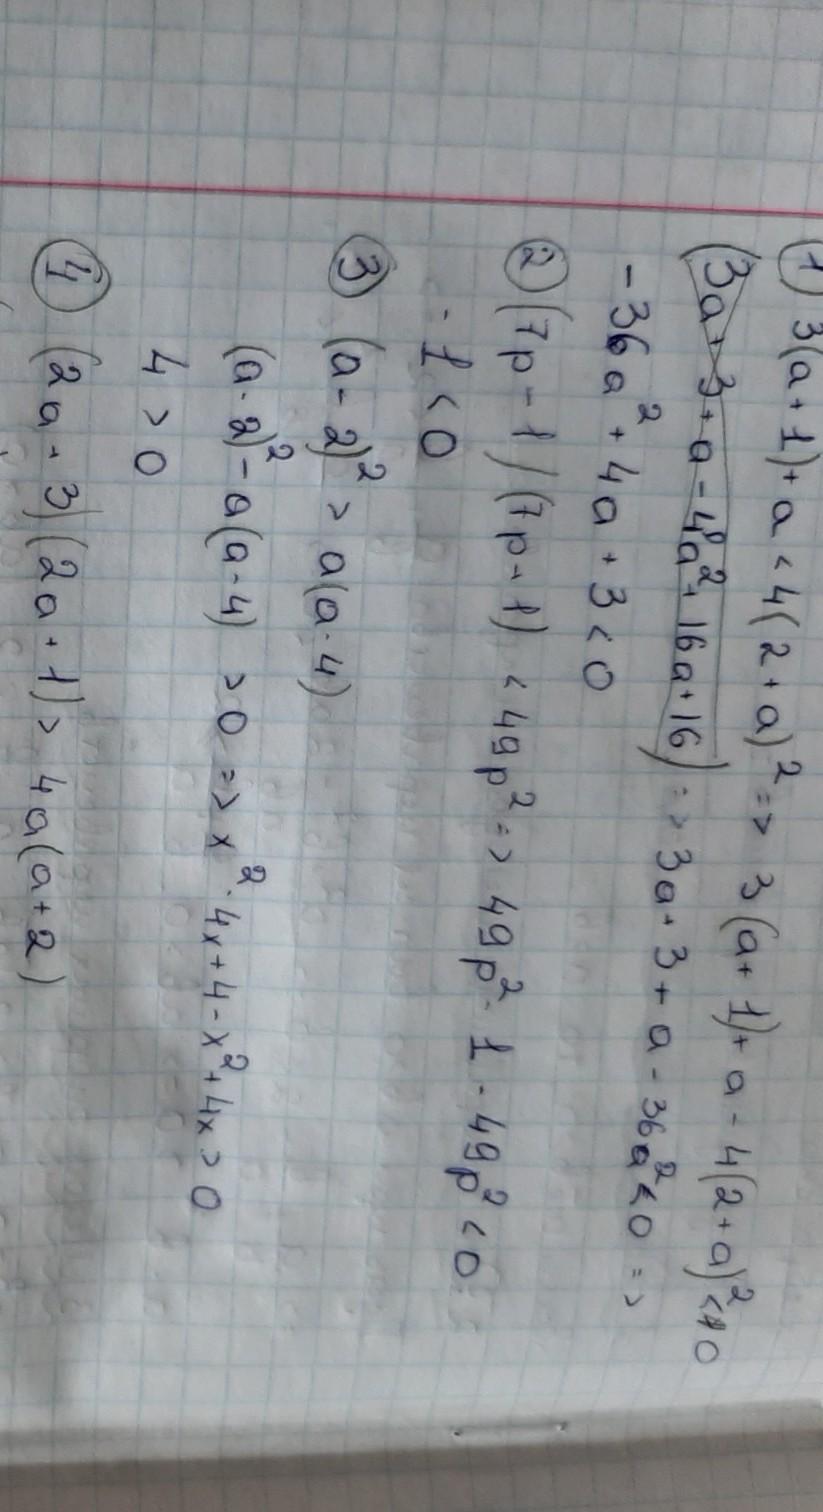 ① 3(a+1)+a<4(2+a)²=> 3(a+1)+a-4(2+a)²<0
(3a+3+a-4a²+16a+16) => 3a+3+a-36a²<0 =>
-36a²+4a+3<0
② (7p-1)(7p+1) < 49p² => 49p²-1-49p²<0
-1<0
③ (a-2)²>a(a-4)
(a-2)²-a(a-4) >0 => x²-4x+4-x²+4x>0
4>0
④ (2a+3)(2a+1)> 4a(a+2)